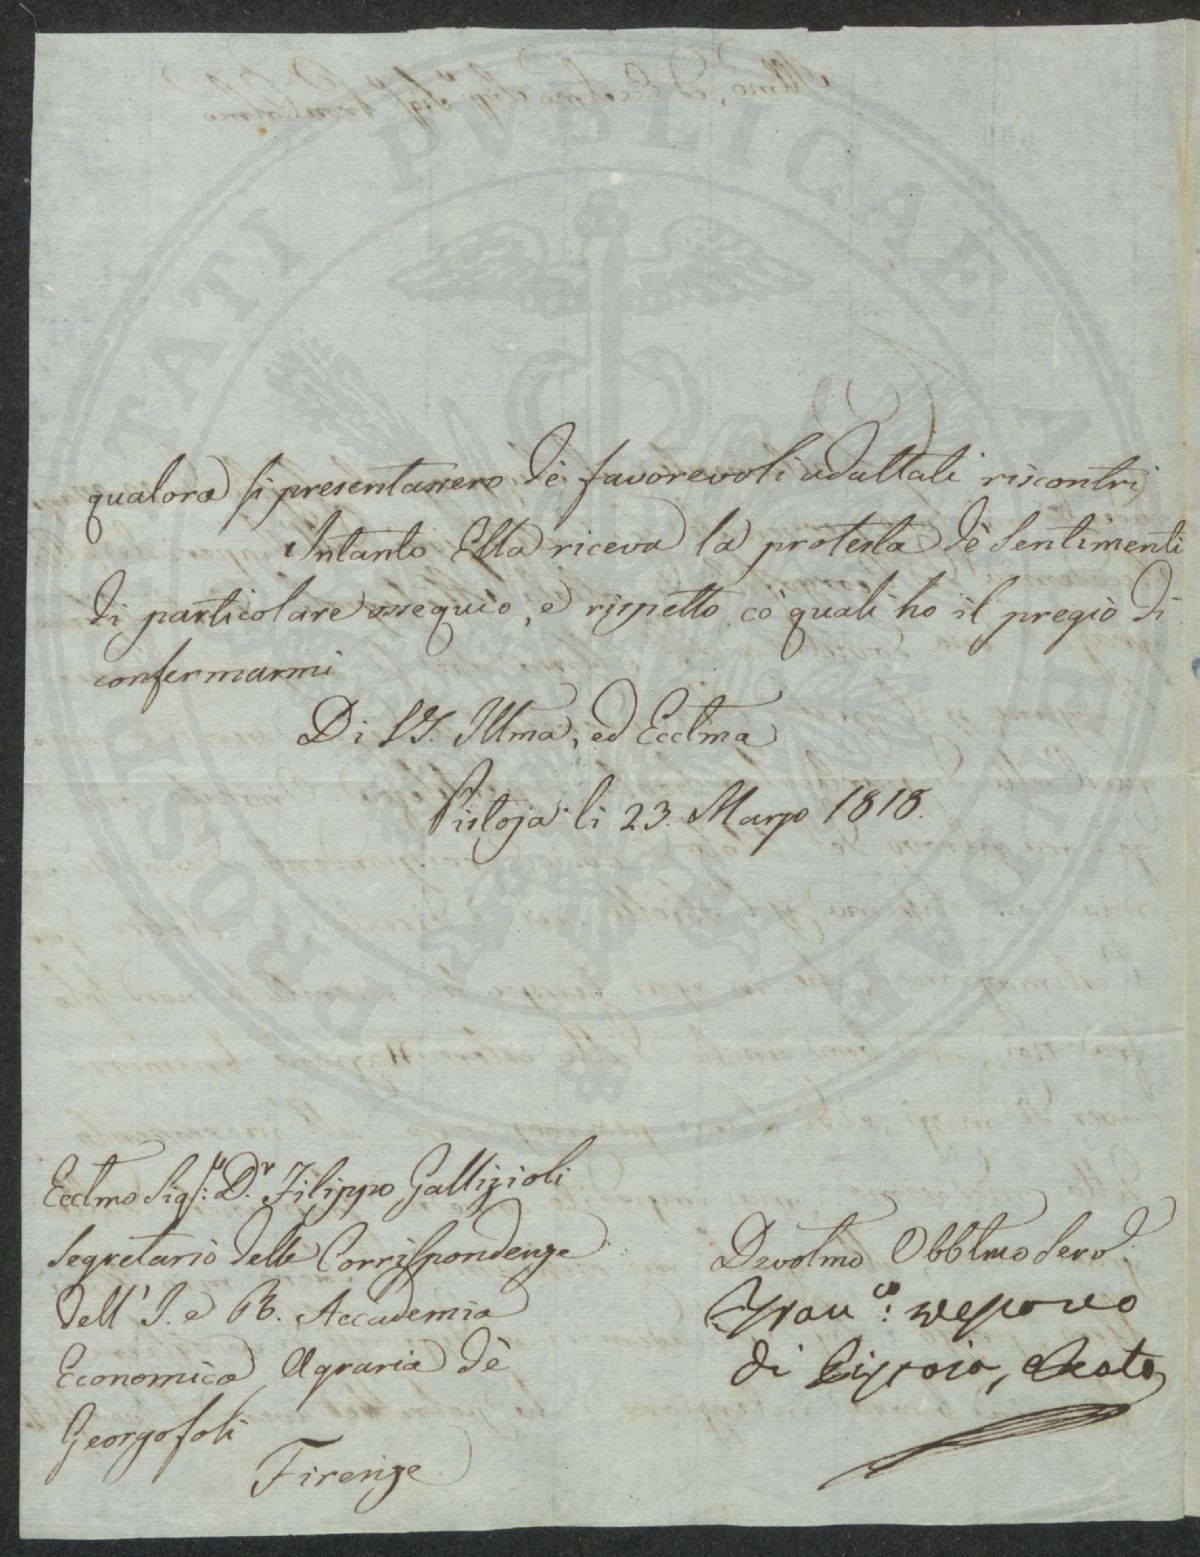 PROSPERITATI PVBLICAE AVGENDAE
qualora si presentassero dè favorevoli adattati riscontri
Intanto Ella riceva la protesta dè Sentimenti
di particolare ossequio, e rispetto co' quali ho il pregio di
confermarmi
Di V.S. Illma, ed Ecclma
Pistoja li 23. Marzo 1818.
Ecclmo Sigr: Dr. Filippo Gallizioli
Segretario delle Corrispondenze
dell' I. e R. Accademia
Economico Agraria dè
Georgofoli
Firenze
Devotmo Obblmo Servo
Franco: Vescovo
di Pistoia, e Prato